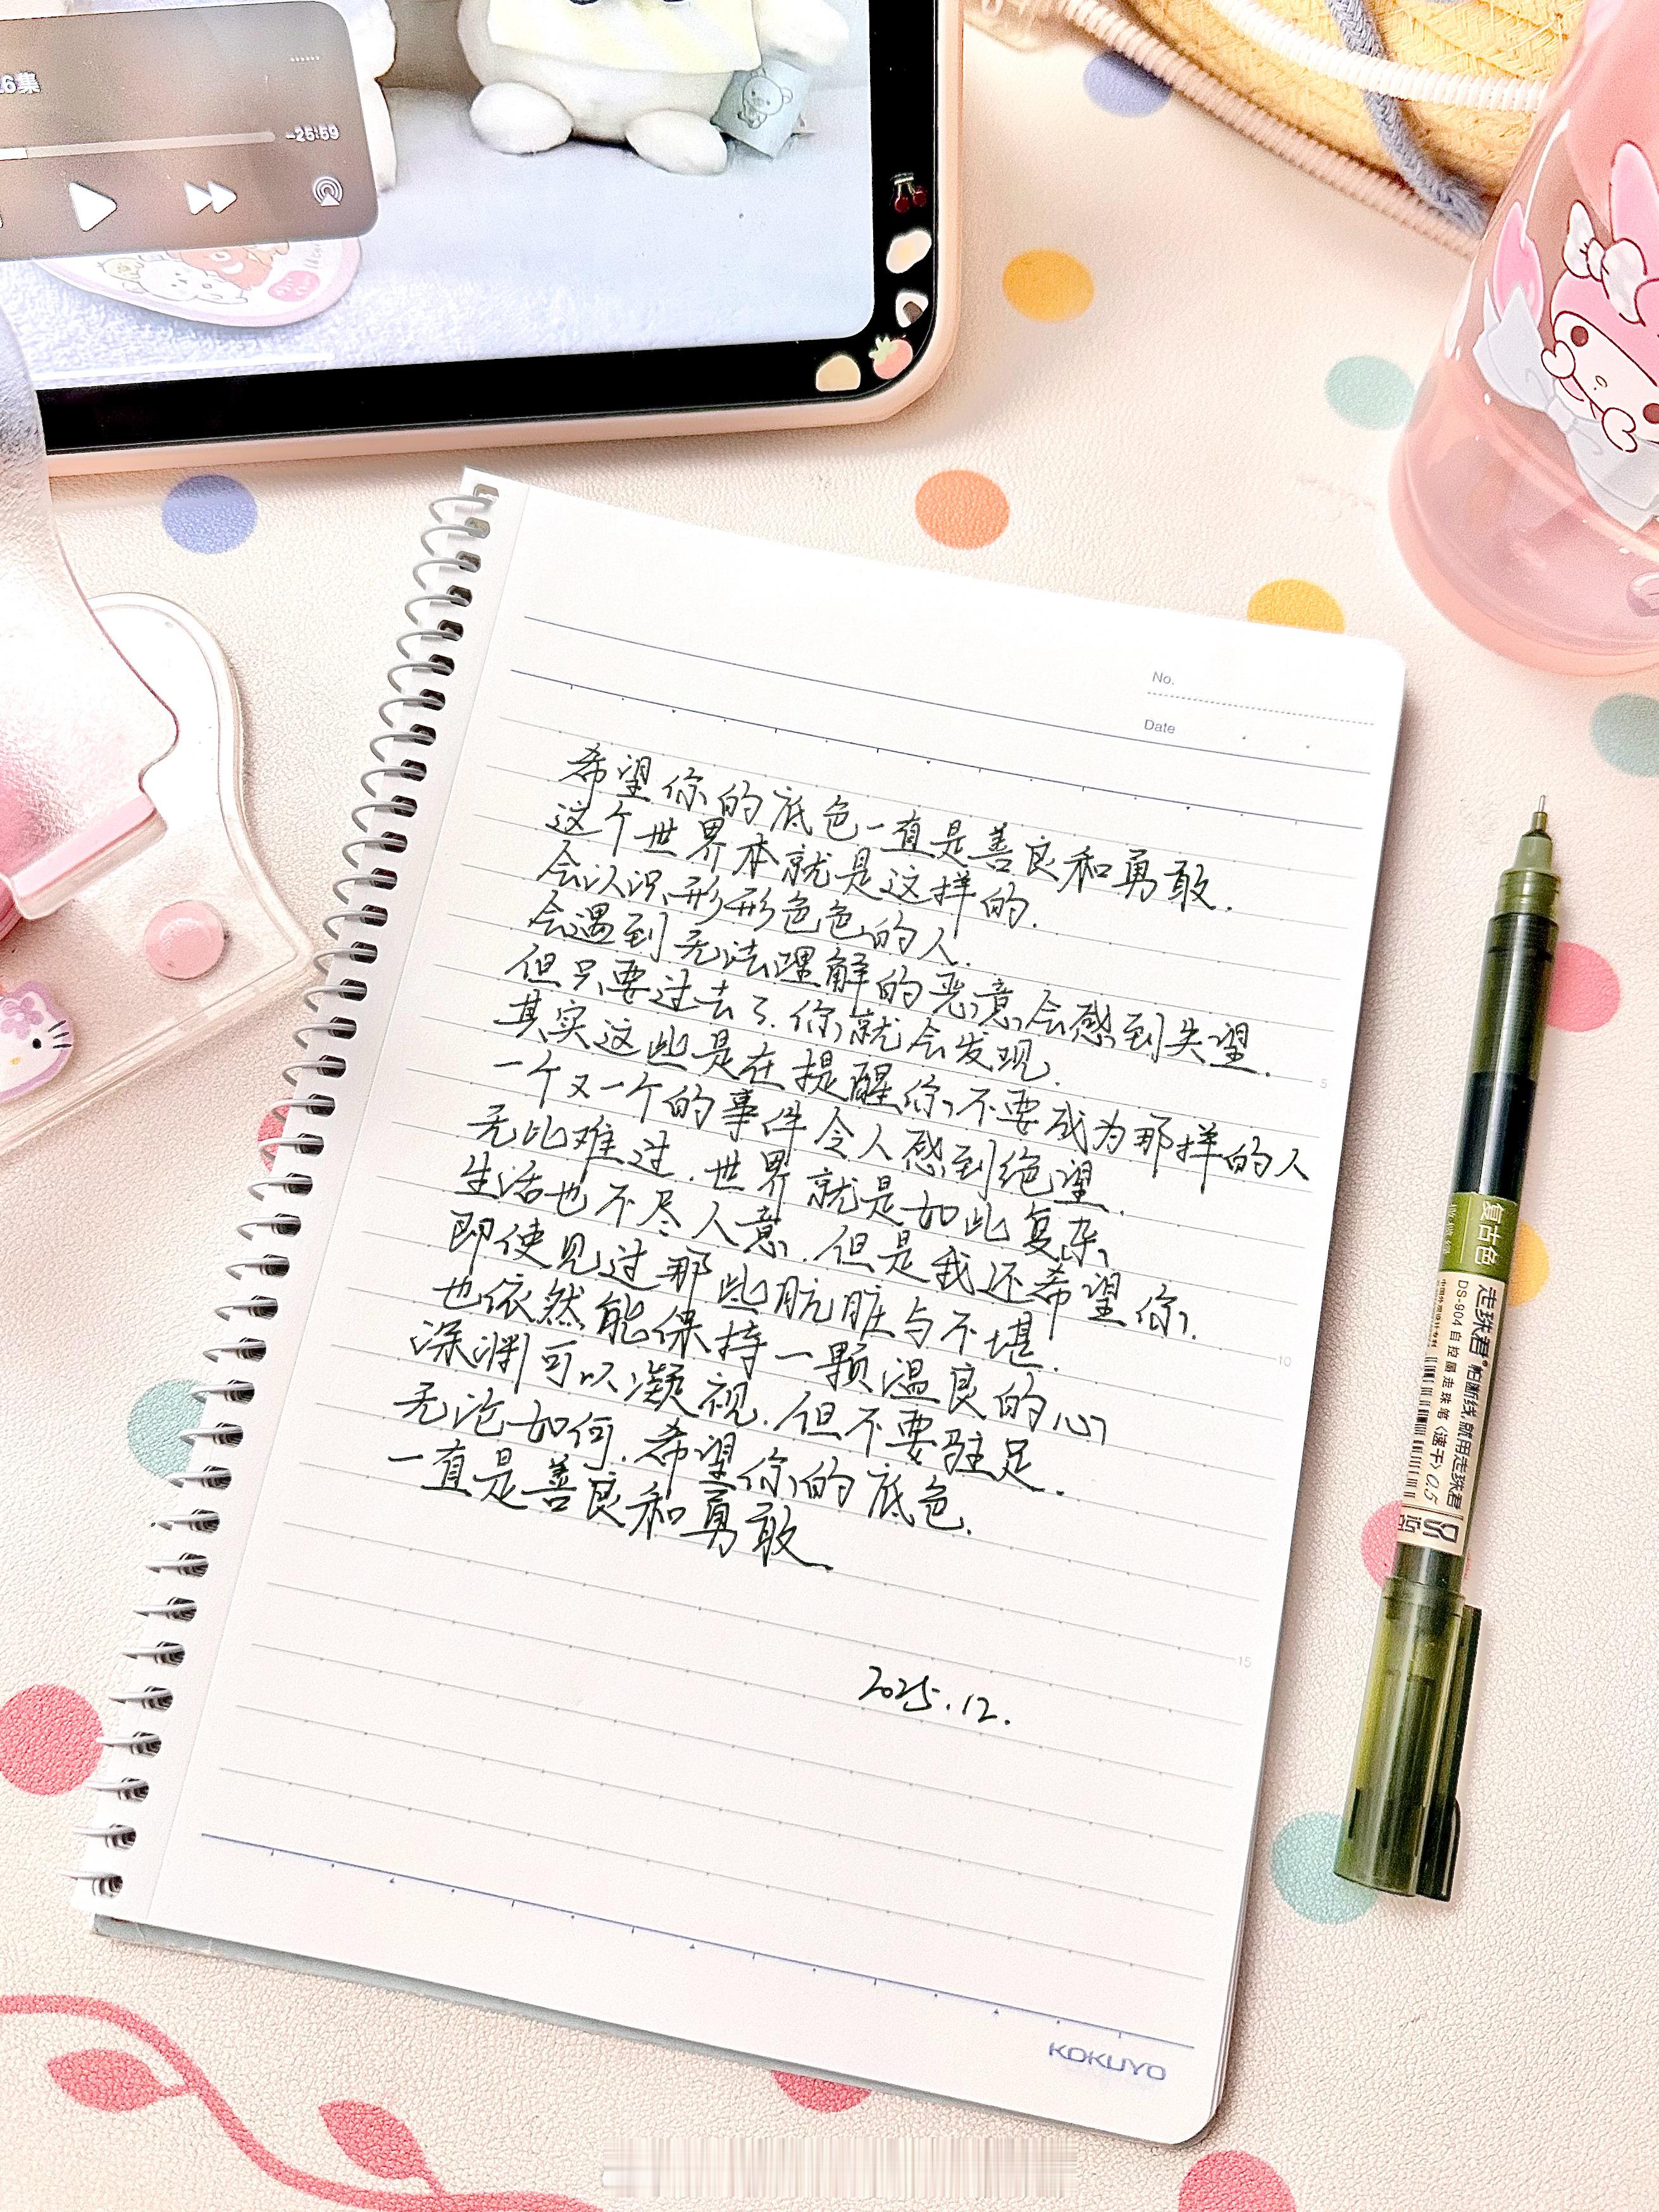 6集
-25:59
No.
Date
希望你的底色一直是善良和勇敢.
这个世界本就是这样的.
会认识形形色色的人.
会遇到无法理解的恶意,会感到失望.
但只要过去了.你就会发现.
其实这些是在提醒你,不要成为那样的人
一个又一个的事件令人感到绝望.
无比难过.世界就是如此复杂,
生活也不尽人意.但是我还希望你.
即使见过那些肮脏与不堪.
也依然能保持一颗温良的心,
深渊可以凝视.但不要驻足.
无论如何.希望你的底色.
一直是善良和勇敢.
2025.12.
5
10
15
KOKUYO
复古色
走珠君® 怕断线,就用走珠君
DS-904 自控晶走珠笔〈速干〉0.5